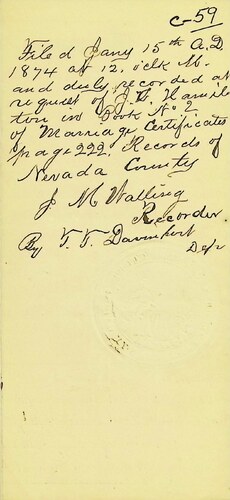 C-59
Filed Jany 15th A.D.
1874 at 12. o'clk M.
and duly recorded at
request of J. H. Hamil
ton in Book No 2
of Marriage Certificates
page 222. Records of
Nevada County
J M Walling
Recorder.
By T. T. Davenport
Dep